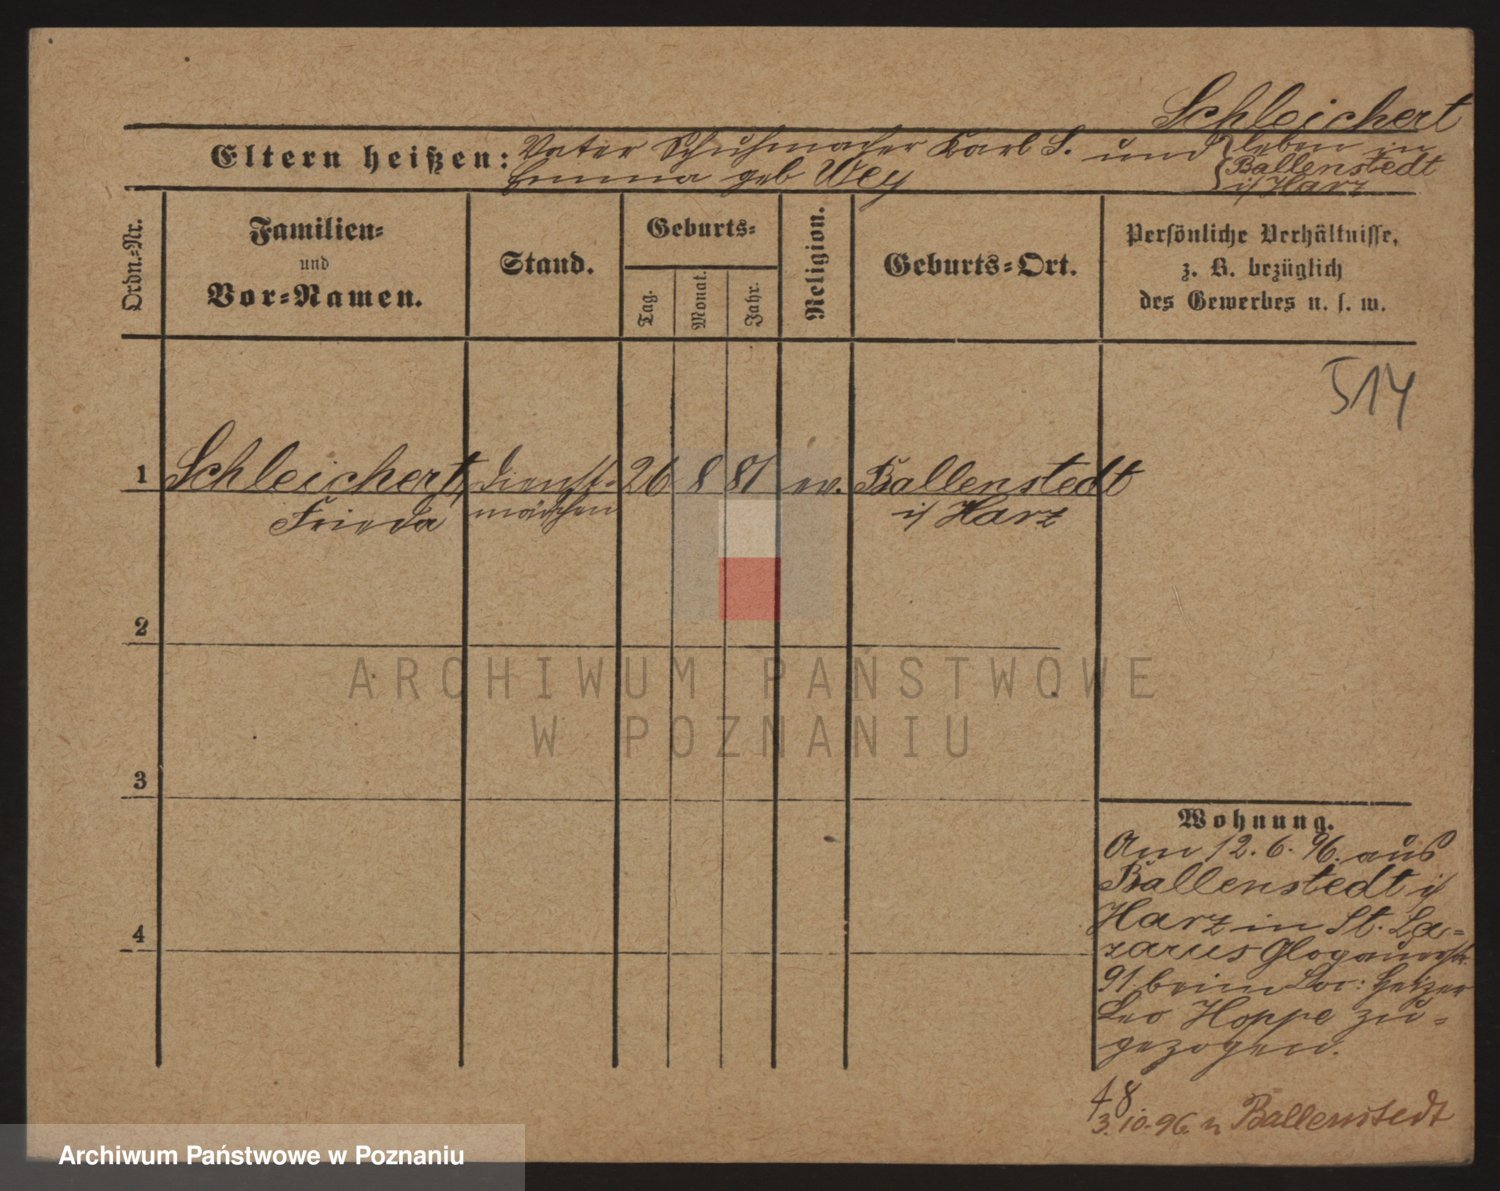 Schleichert
Eltern heißen: Vater Schuhmacher Karl S. und
Emma geb Wey
leben in
Ballenstedt
i/ Harz
Ordn.-Nr.
Familien-
und
Vor-Namen.
Stand.
Geburts-
Tag.
Monat.
Jahr.
Religion.
Geburts-Ort.
Persönliche Verhältnisse,
z. B. bezüglich
des Gewerbes u. s. w.
514
1 Schleichert, Dienst- 26 8 81 ev. Ballenstedt
Frieda mädchen i/ Harz
2
3
4
Wohnung.
Am 12. 6. 96. aus
Ballenstedt i/
Harz in St. La-
zarus Glogauerstr.
91 beim Loc: Heizer
Leo Hoppe zu-
gezogen.
48
3.10.96. n Ballenstedt
ARCHIWUM PAŃSTWOWE
W POZNANIU
Archiwum Państwowe w Poznaniu